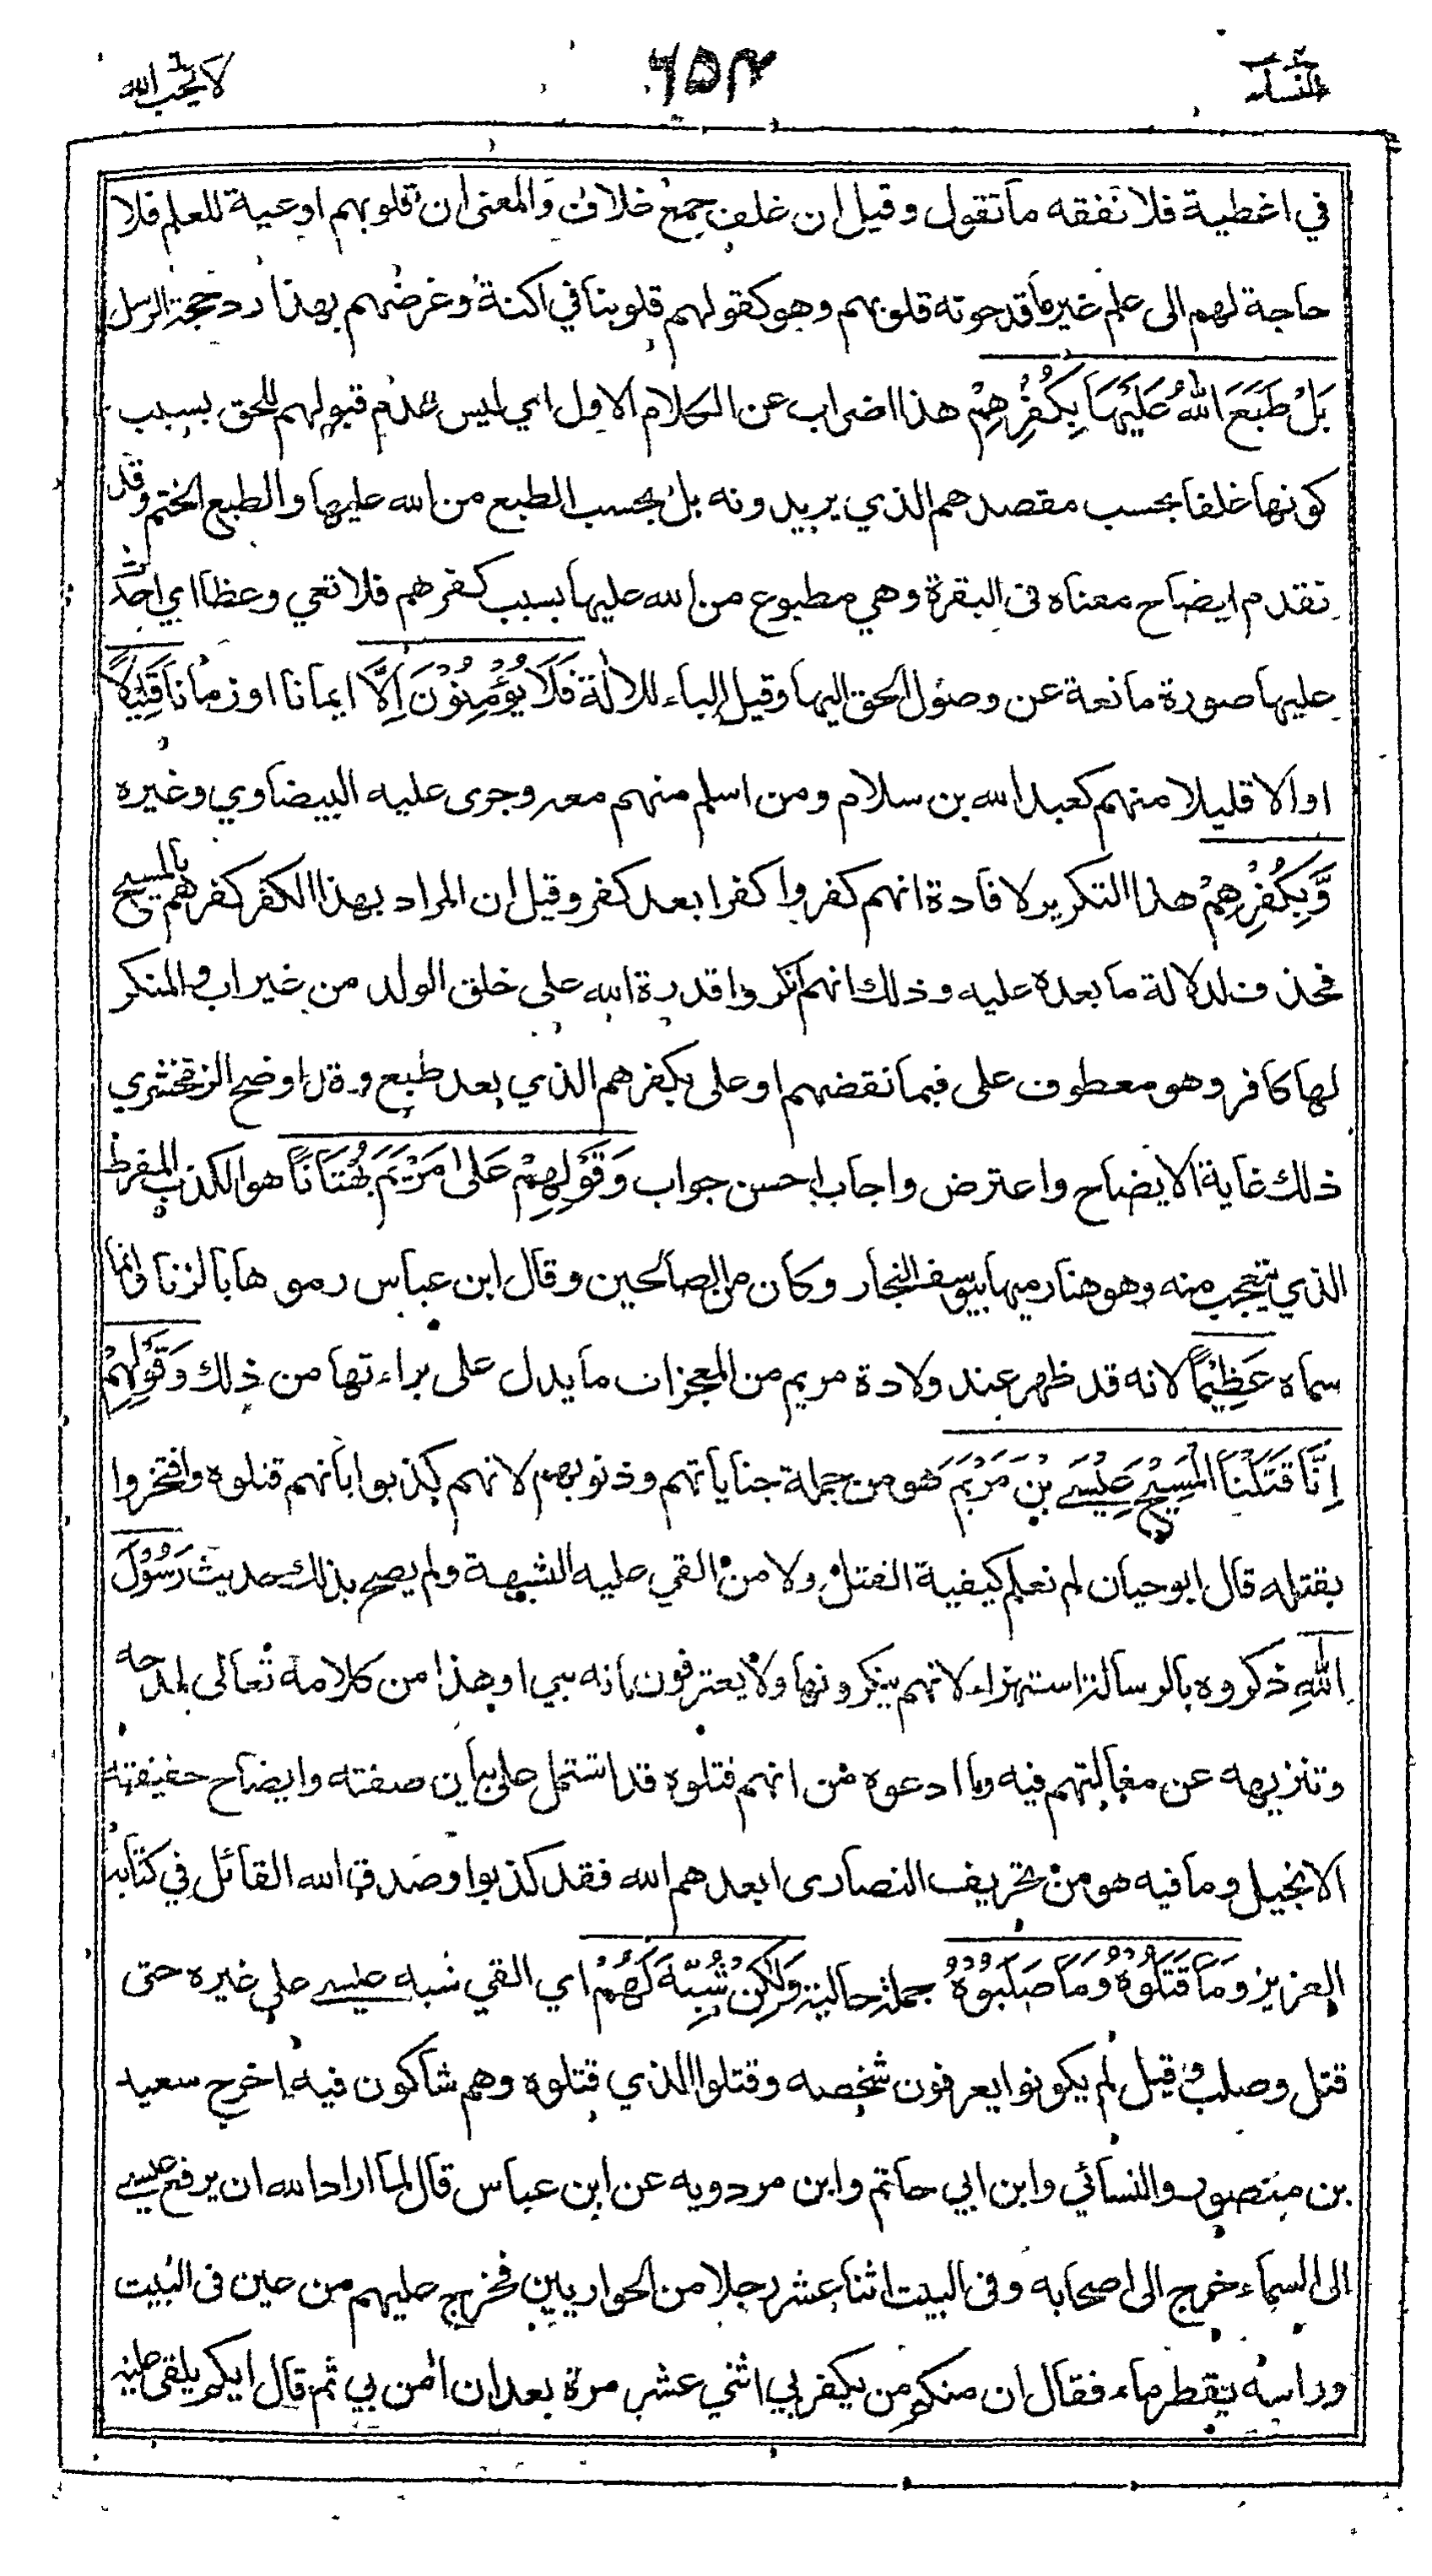 النساء
٦٥٣
لا يحب الله
في اغطية فلا نفقه ما تقول وقيل ان غلف جمع غلاف والمعنى ان قلوبهم اوعية للعلم فلا
حاجة لهم الى علم غير ما قد حوته قلوبهم وهو كقولهم قلوبنا في اكنة وغرضهم بهذا رد حجة الرسل
بَلْ طَبَعَ اللهُ عَلَيْهَا بِكُفْرِهِمْ هذا اضراب عن الكلام الاول اي ليس عدم قبولهم للحق بسبب
كونها غلفا بحسب مقصدهم الذي يريدونه بل بحسب الطبع من الله عليها والطبع الختم وقد
تقدم ايضاح معناه فى البقرة وهي مطبوع من الله عليها بسبب كفرهم فلا تعي وعظا اي احدث
عليها صورة مانعة عن وصول الحق اليها وقيل الباء للالة فَلَا يُؤْمِنُوْنَ اِلَّا ايمانا او زمانا قَلِيْلًا
او الا قليلا منهم كعبد الله بن سلام ومن اسلم منهم معه وجرى عليه البيضاوي وغيره
وَّبِكُفْرِهِمْ هذا التكرير لافادة انهم كفروا كفرا بعد كفر وقيل ان المراد بهذا الكفر كفرهم بالمسيح
فحذف لدلالة ما بعده عليه وذلك انهم انكروا قدرة الله على خلق الولد من غير اب والمنكر
لها كافر وهو معطوف على فبما نقضهم او على بكفرهم الذي بعد طبع وقد اوضح الزمخشري
ذلك غاية الايضاح واعترض واجاب احسن جواب وَقَوْلِهِمْ عَلٰى مَرْيَمَ بُهْتَانًا هو الكذب المفرط
الذي يتعجب منه وهو هنا رميها بيوسف النجار وكان من الصالحين وقال ابن عباس رموها بالزنا وانما
سماه عَظِيْمًا لانه قد ظهر عند ولادة مريم من المعجزات ما يدل على براءتها من ذلك وَقَوْلِهِمْ
اِنَّا قَتَلْنَا الْمَسِيْحَ عِيْسَى بْنَ مَرْيَمَ هو من جملة جناياتهم وذنوبهم لانهم كذبوا بانهم قتلوه وافتخروا
بقتله قال ابو حيان لم نعلم كيفية القتل ولا من القي عليه الشبهة ولم يصح بذلك حديث رَسُوْلَ
اللهِ ذكروه بالرسالة استهزاء لانهم ينكرونها ولا يعترفون بانه نبي او هذا من كلامه تعالى لمدحه
وتنزيهه عن مقالتهم فيه وما ادعوه من انهم قتلوه قد اشتمل على بيان صفته وايضاح حقيقته
الانجيل وما فيه هو من تحريف النصارى ابعدهم الله فقد كذبوا وصدق الله القائل في كتابه
العزيز وَمَا قَتَلُوْهُ وَمَا صَلَبُوْهُ جملة حالية وَلٰكِنْ شُبِّهَ لَهُمْ اي القي شبه عيسى على غيره حتى
قتل وصلب وقيل لم يكونوا يعرفون شخصه وقتلوا الذي قتلوه وهم شاكون فيه اخرج سعيد
بن منصور والنسائي وابن ابي حاتم وابن مردويه عن ابن عباس قال لما اراد الله ان يرفع عيسى
الى السماء خرج الى اصحابه وفى البيت اثنا عشر رجلا من الحواريين فخرج عليهم من عين فى البيت
وراسه يقطر ماء فقال ان منكم من يكفر بي اثني عشر مرة بعد ان امن بي ثم قال ايكم يلقى عليه